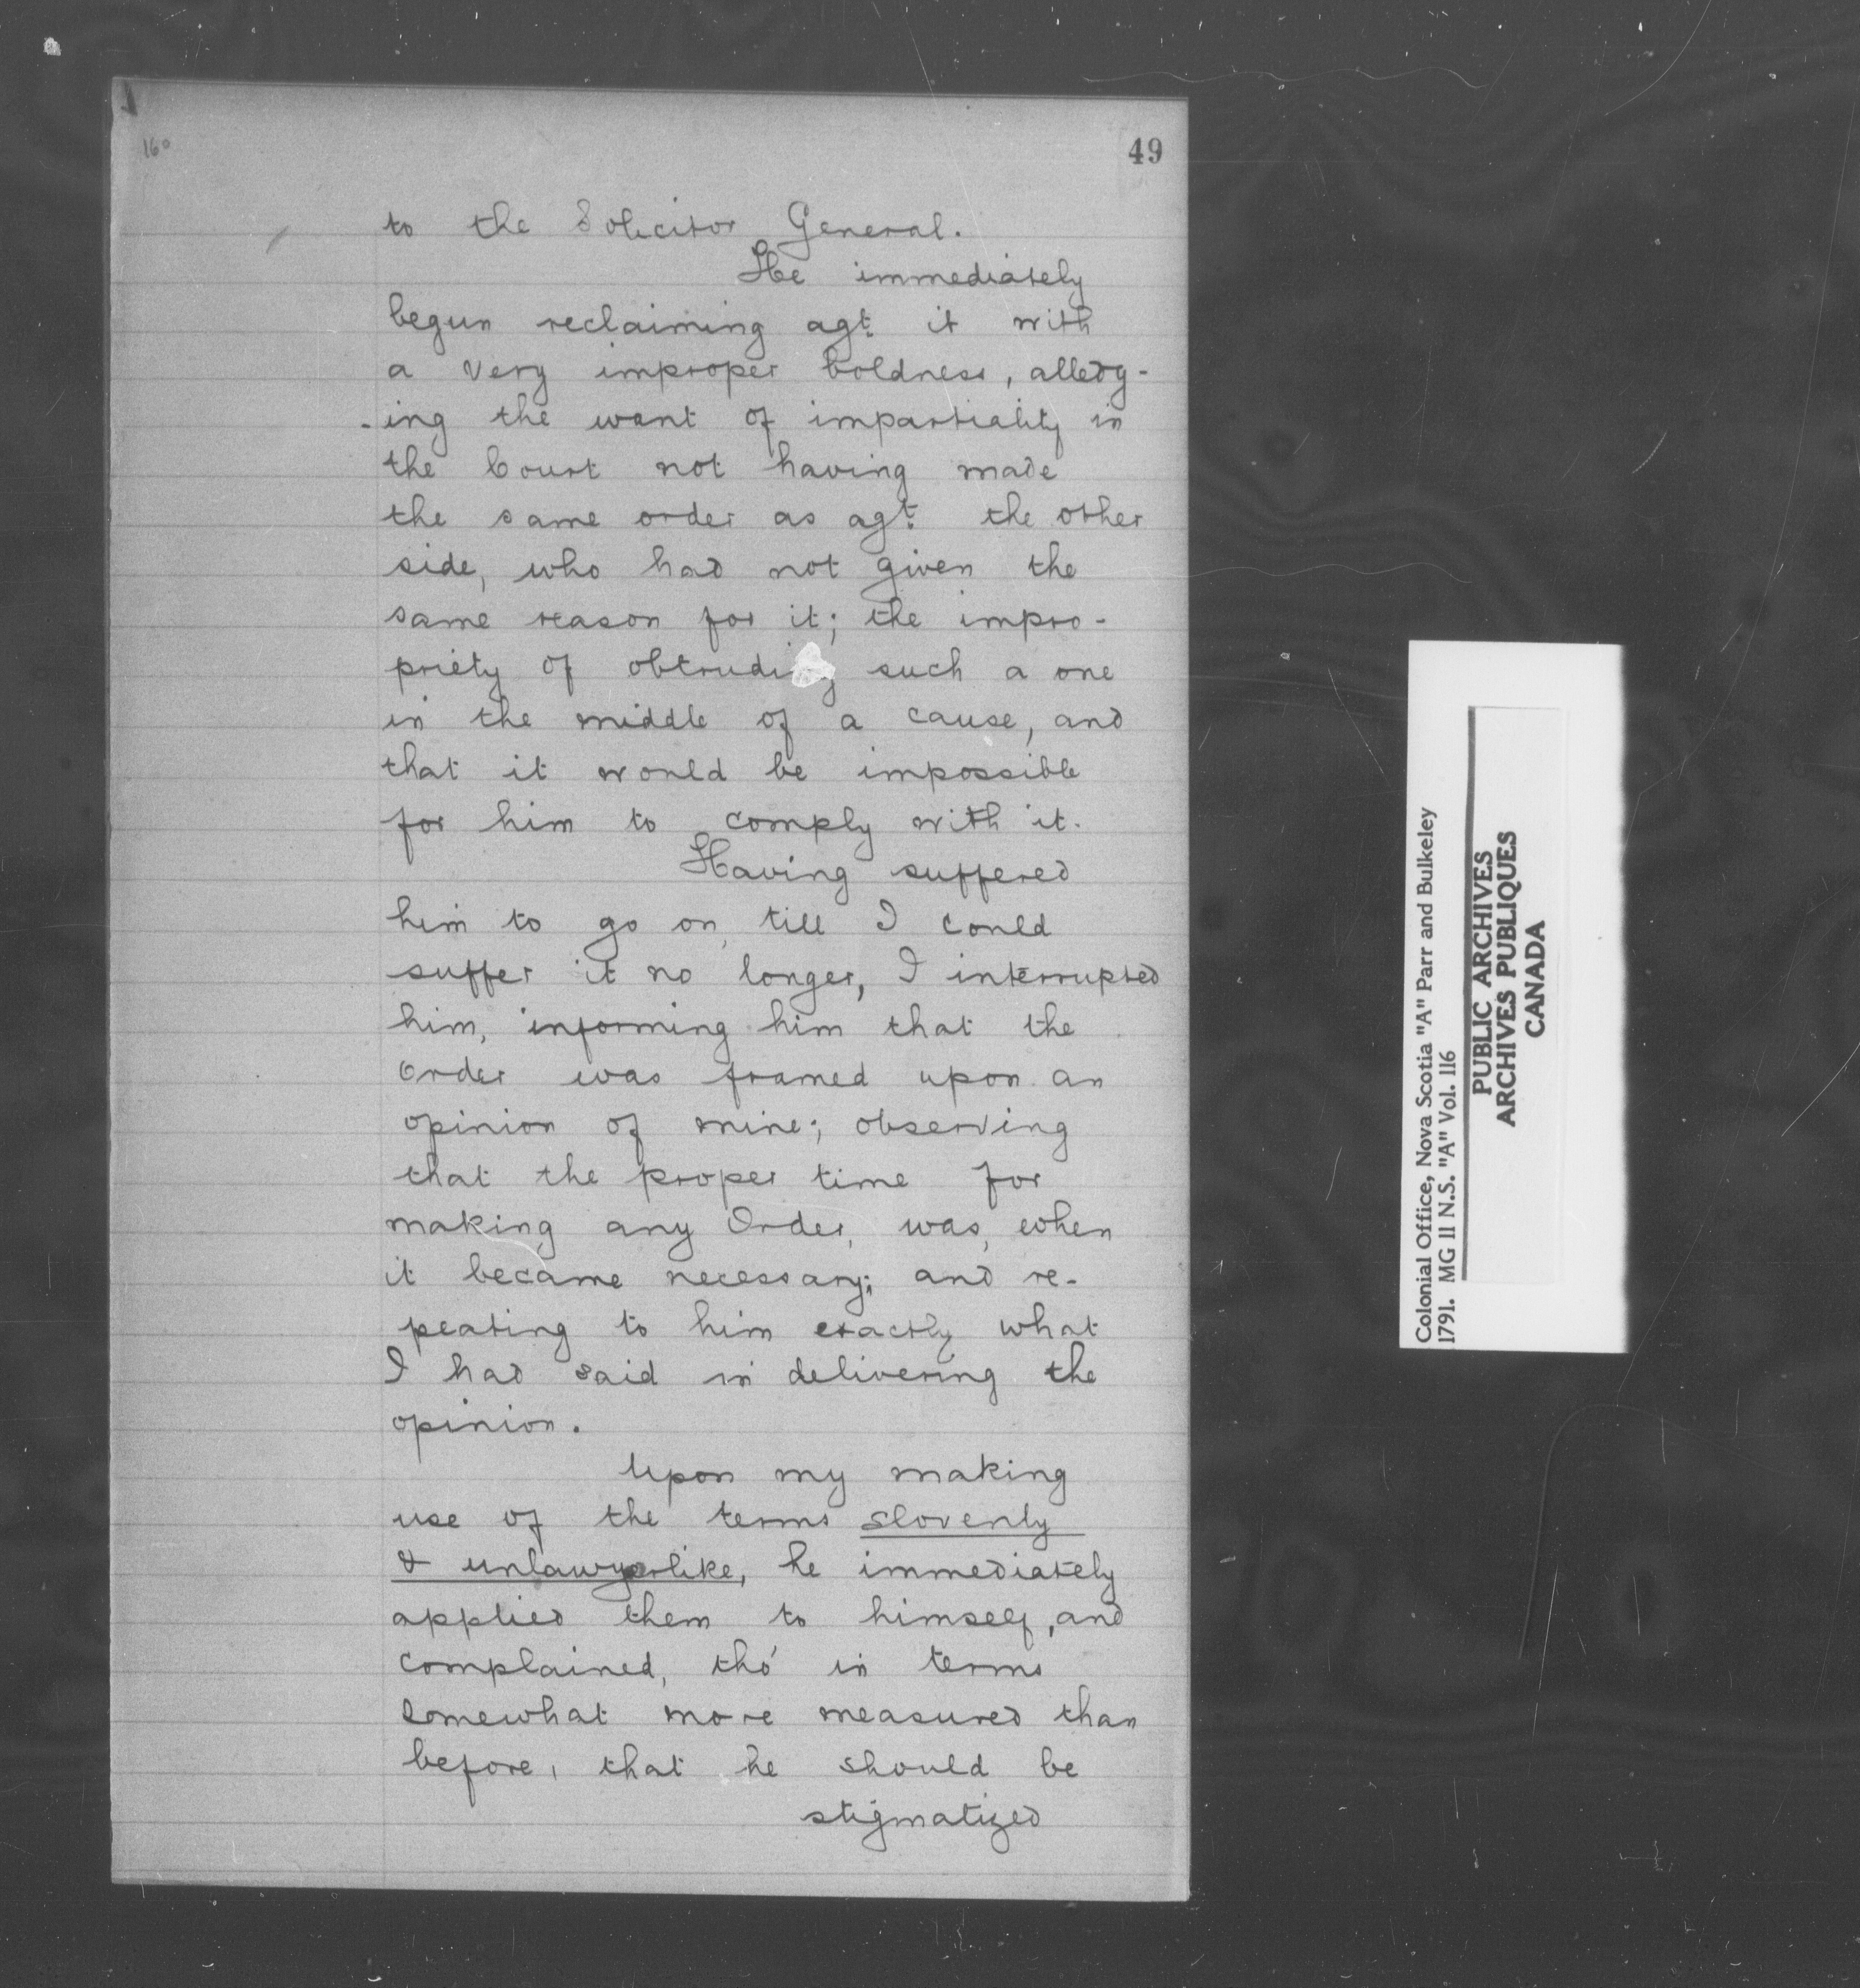 160
49
to the Solicitor General.
He immediately
begun reclaiming agt. it with
a very improper boldness, alledg-
-ing the want of impartiality in
the Court not having made
the same order as agt. the other
side, who had not given the
same reason for it; the impro-
priety of obtruding such a one
in the middle of a cause, and
that it would be impossible
for him to comply with it.
Having suffered
him to go on till I could
suffer it no longer, I interrupted
him, informing him that the
Order was framed upon an
opinion of mine; observing
that the proper time for
making any Order, was, when
it became necessary; and re-
peating to him exactly what
I had said in delivering the
opinion.
Upon my making
use of the terms slovenly
& unlawyerlike, he immediately
applied them to himself, and
complained, tho' in terms
somewhat more measured than
before, that he should be
stigmatized
Colonial Office, Nova Scotia "A" Parr and Bulkeley
1791. MG 11 N.S. "A" Vol. 116
PUBLIC ARCHIVES
ARCHIVES PUBLIQUES
CANADA